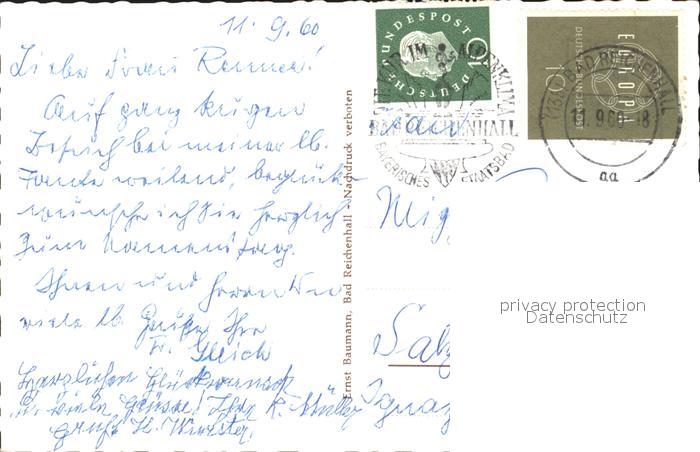 11. 9. 60
Liebe Frau Renner!
Auf ganz kurzen
Besuch bei meiner lb.
Tante weilend, beglück-
wünsche ich Sie herzlich
zum Namenstag.
Ihnen und Herrn
viele lb. Grüße Ihre
Fr. Gleich
Herzlichen Glückwunsch
u. viele Grüsse! Ihre K. Müller
DEUTSCHE BUNDESPOST
10
EUROPA
DEUTSCHE BUNDESPOST
10
IM ALPENKLIMA
BAD REICHENHALL
BAYERISCHES STAATSBAD
(13b) BAD REICHENHALL
9.60.-8
aa
Ernst Baumann, Bad Reichenhall · Nachdruck verboten
Frau
Mig
Salz
Ignaz
privacy protection
Datenschutz